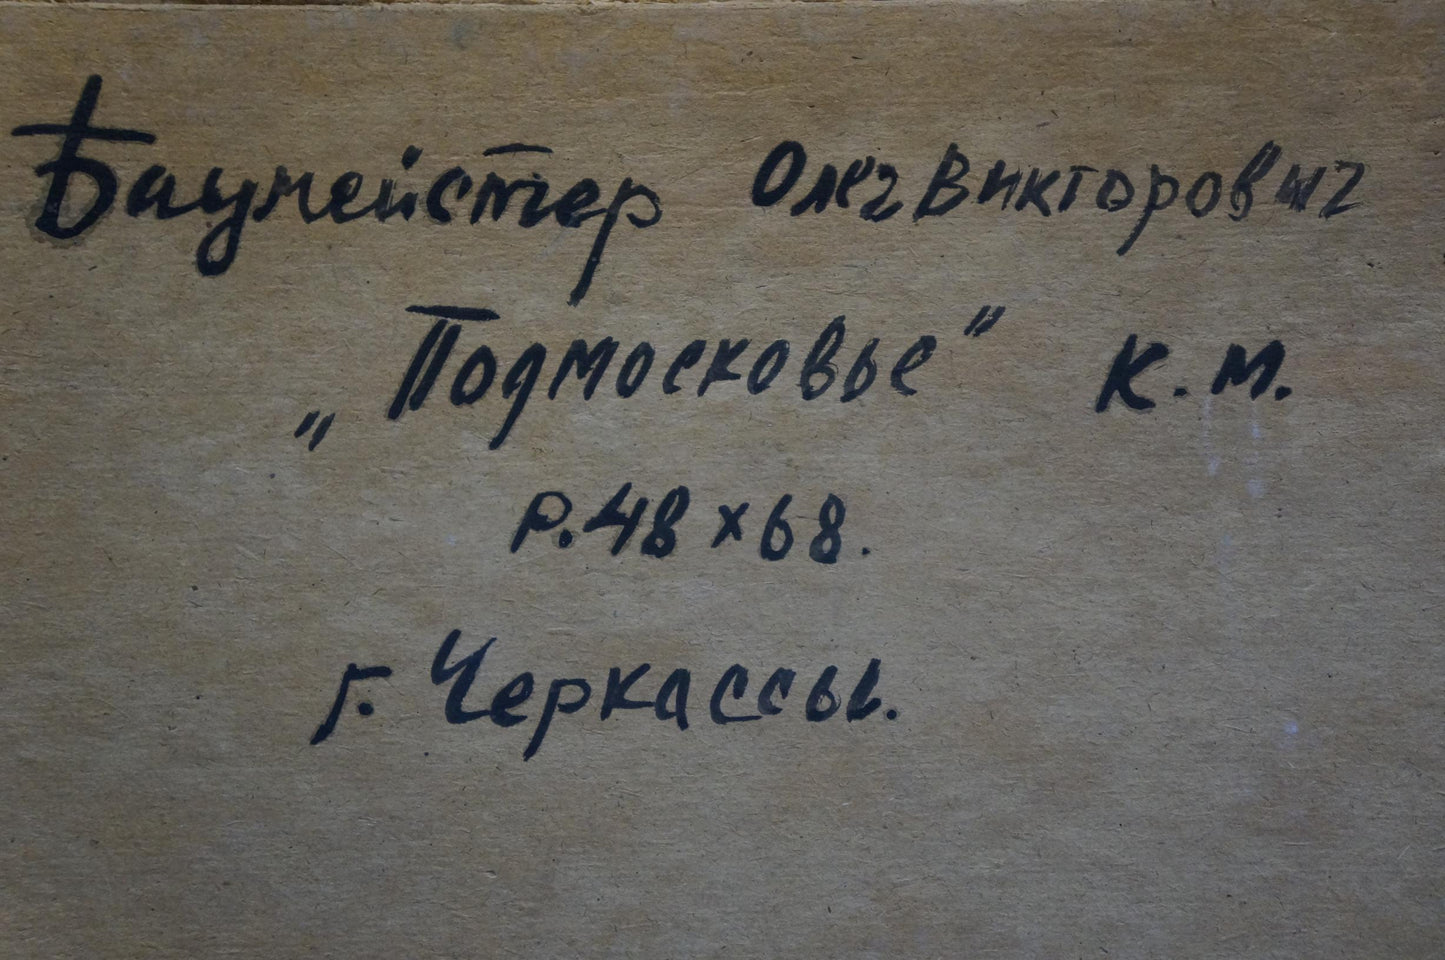 Баумейстер Олег Викторович
„Подмосковье" к.м.
р.48х68.
г. Черкассы.